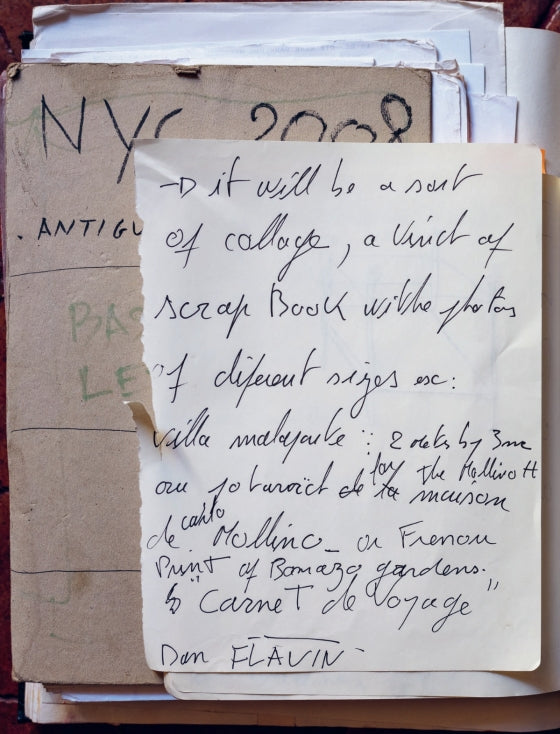 NYC 2008
. ANTIGU
BAS
LE
→ it will be a sort
of collage, a kinct of
scrap Book withe photos
of diferent sizes ex:
villa malaparte : 2 mets by 3m
ou for The Mollino H
de la maison
de carlo Mollino _ or French
Print of Bomazo gardens.
"Carnet de Voyage"
Dan FLAVIN